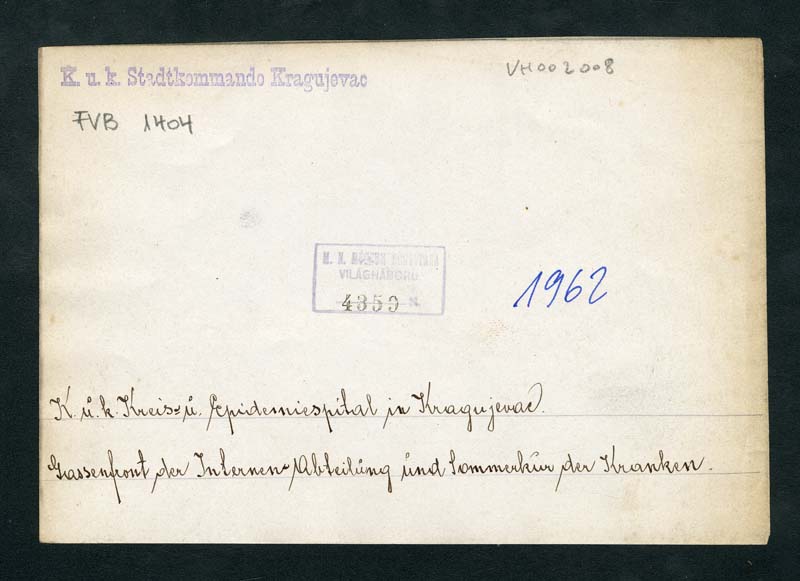 K. u. k. Stadtkommando Kragujevac
VH002008
FVB 1404
VILÁGHÁBORÚ
4359
1962
K. u. k. Kreis= u. Epidemiespital in Kragujevac.
Gassenfront der Internen Abteilung und Sommerkur der Kranken.